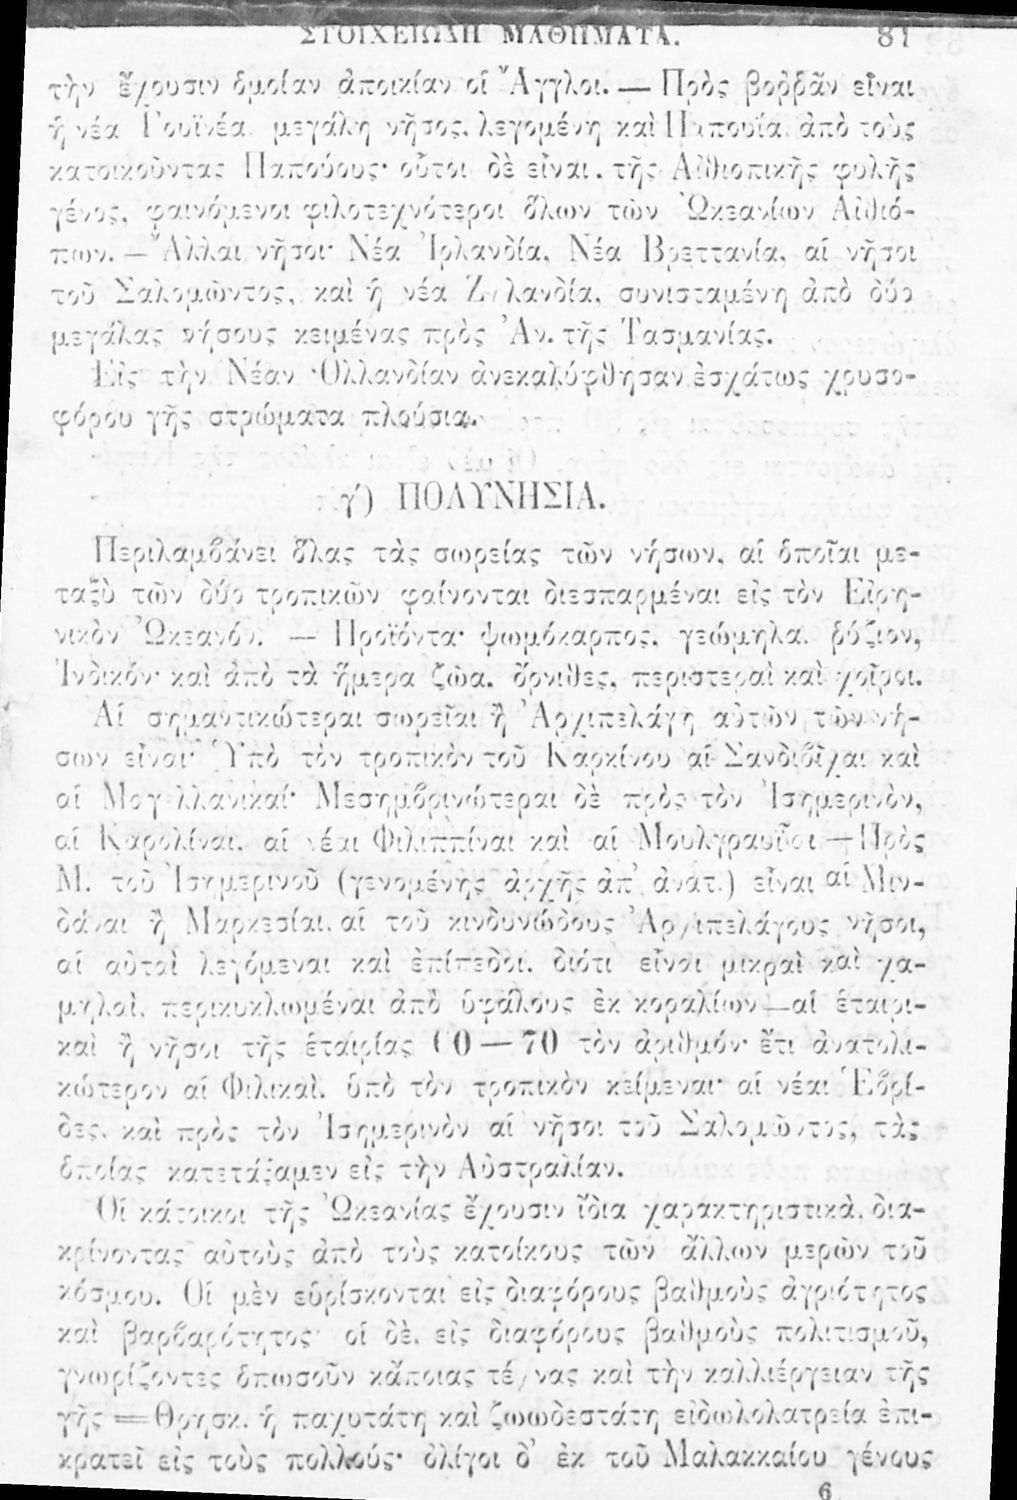 ΣΤΟΙΧΕΙΩΔΗ ΜΑΘΗΜΑΤΑ. 81
τὴν ἔχουσιν ὁμοίαν ἀποικίαν οἱ Ἄγγλοι. — Πρὸς βοῤῥᾶν εἶναι
ἡ νέα Γουϊνέα, μεγάλη νῆσος, λεγομένη καὶ Παπουΐα ἀπὸ τοὺς
κατοικοῦντας Παπούους· οὗτοι δὲ εἶναι τῆς Αἰθιοπικῆς φυλῆς
γένος, φαινόμενοι φιλοτεχνότεροι ὅλων τῶν Ὠκεανίων Αἰθιό-
πων. — Ἄλλαι νῆσοι· Νέα Ἰρλανδία, Νέα Βρεττανία, αἱ νῆσοι
τοῦ Σαλομῶντος, καὶ ἡ νέα Ζηλανδία, συνισταμένη ἀπὸ δύο
μεγάλας νήσους κειμένας πρὸς Ἀν. τῆς Τασμανίας.
Εἰς τὴν Νέαν Ὁλλανδίαν ἀνεκαλύφθησαν ἐσχάτως χρυσο-
φόρου γῆς στρώματα πλούσια.
γ΄) ΠΟΛΥΝΗΣΙΑ.
Περιλαμβάνει ὅλας τὰς σωρείας τῶν νήσων, αἱ ὁποῖαι με-
ταξὺ τῶν δύο τροπικῶν φαίνονται διεσπαρμέναι εἰς τὸν Εἰρη-
νικὸν Ὠκεανόν. — Προϊόντα· ψωμόκαρπος, γεώμηλα, ῥύζιον,
Ἰνδικόν· καὶ ἀπὸ τὰ ἥμερα ζῶα, ὄρνιθες, περιστεραὶ καὶ χοῖροι.
Αἱ σημαντικώτεραι σωρεῖαι ἢ Ἀρχιπελάγη αὐτῶν τῶν νή-
σων εἶναι· Ὑπὸ τὸν τροπικὸν τοῦ Καρκίνου αἱ Σανδιβῖχαι καὶ
αἱ Μαγελλανικαί· Μεσημβρινώτεραι δὲ πρὸς τὸν Ἰσημερινὸν,
αἱ Καρολίναι, αἱ νέαι Φιλιππίναι καὶ αἱ Μουλγραυῖδοι — Πρὸς
Μ. τοῦ Ἰσημερινοῦ (γενομένης ἀρχῆς ἀπ’ ἀνάτ.) εἶναι αἱ Μιν-
δάναι ἢ Μαρκεσίαι, αἱ τοῦ κινδυνώδους Ἀρχιπελάγους νῆσοι,
αἱ αὐταὶ λεγόμεναι καὶ ἐπίπεδοι, διότι εἶναι μικραὶ καὶ χα-
μηλαὶ, περικυκλωμέναι ἀπὸ ὑφάλους ἐκ κοραλίων — αἱ ἑταιρι-
καὶ ἢ νῆσοι τῆς ἑταιρίας 60 — 70 τὸν ἀριθμόν· ἔτι ἀνατολι-
κώτερον αἱ Φιλικαὶ, ὑπὸ τὸν τροπικὸν κείμεναι· αἱ νέαι Ἑβρί-
δες, καὶ πρὸς τὸν Ἰσημερινὸν αἱ νῆσοι τοῦ Σαλομῶντος, τὰς
ὁποίας κατετάξαμεν εἰς τὴν Αὐστραλίαν.
Οἱ κάτοικοι τῆς Ὠκεανίας ἔχουσιν ἴδια χαρακτηριστικὰ, δια-
κρίνοντας αὐτοὺς ἀπὸ τοὺς κατοίκους τῶν ἄλλων μερῶν τοῦ
κόσμου. Οἱ μὲν εὑρίσκονται εἰς διαφόρους βαθμοὺς ἀγριότητος
καὶ βαρβαρότητος· οἱ δὲ, εἰς διαφόρους βαθμοὺς πολιτισμοῦ,
γνωρίζοντες ὁπωσοῦν κἄποιας τέχνας καὶ τὴν καλλιέργειαν τῆς
γῆς = Θρησκ. ἡ παχυτάτη καὶ ζωωδεστάτη εἰδωλολατρεία ἐπι-
κρατεῖ εἰς τοὺς πολλούς· ὀλίγοι δ’ ἐκ τοῦ Μαλακκαίου γένους
6